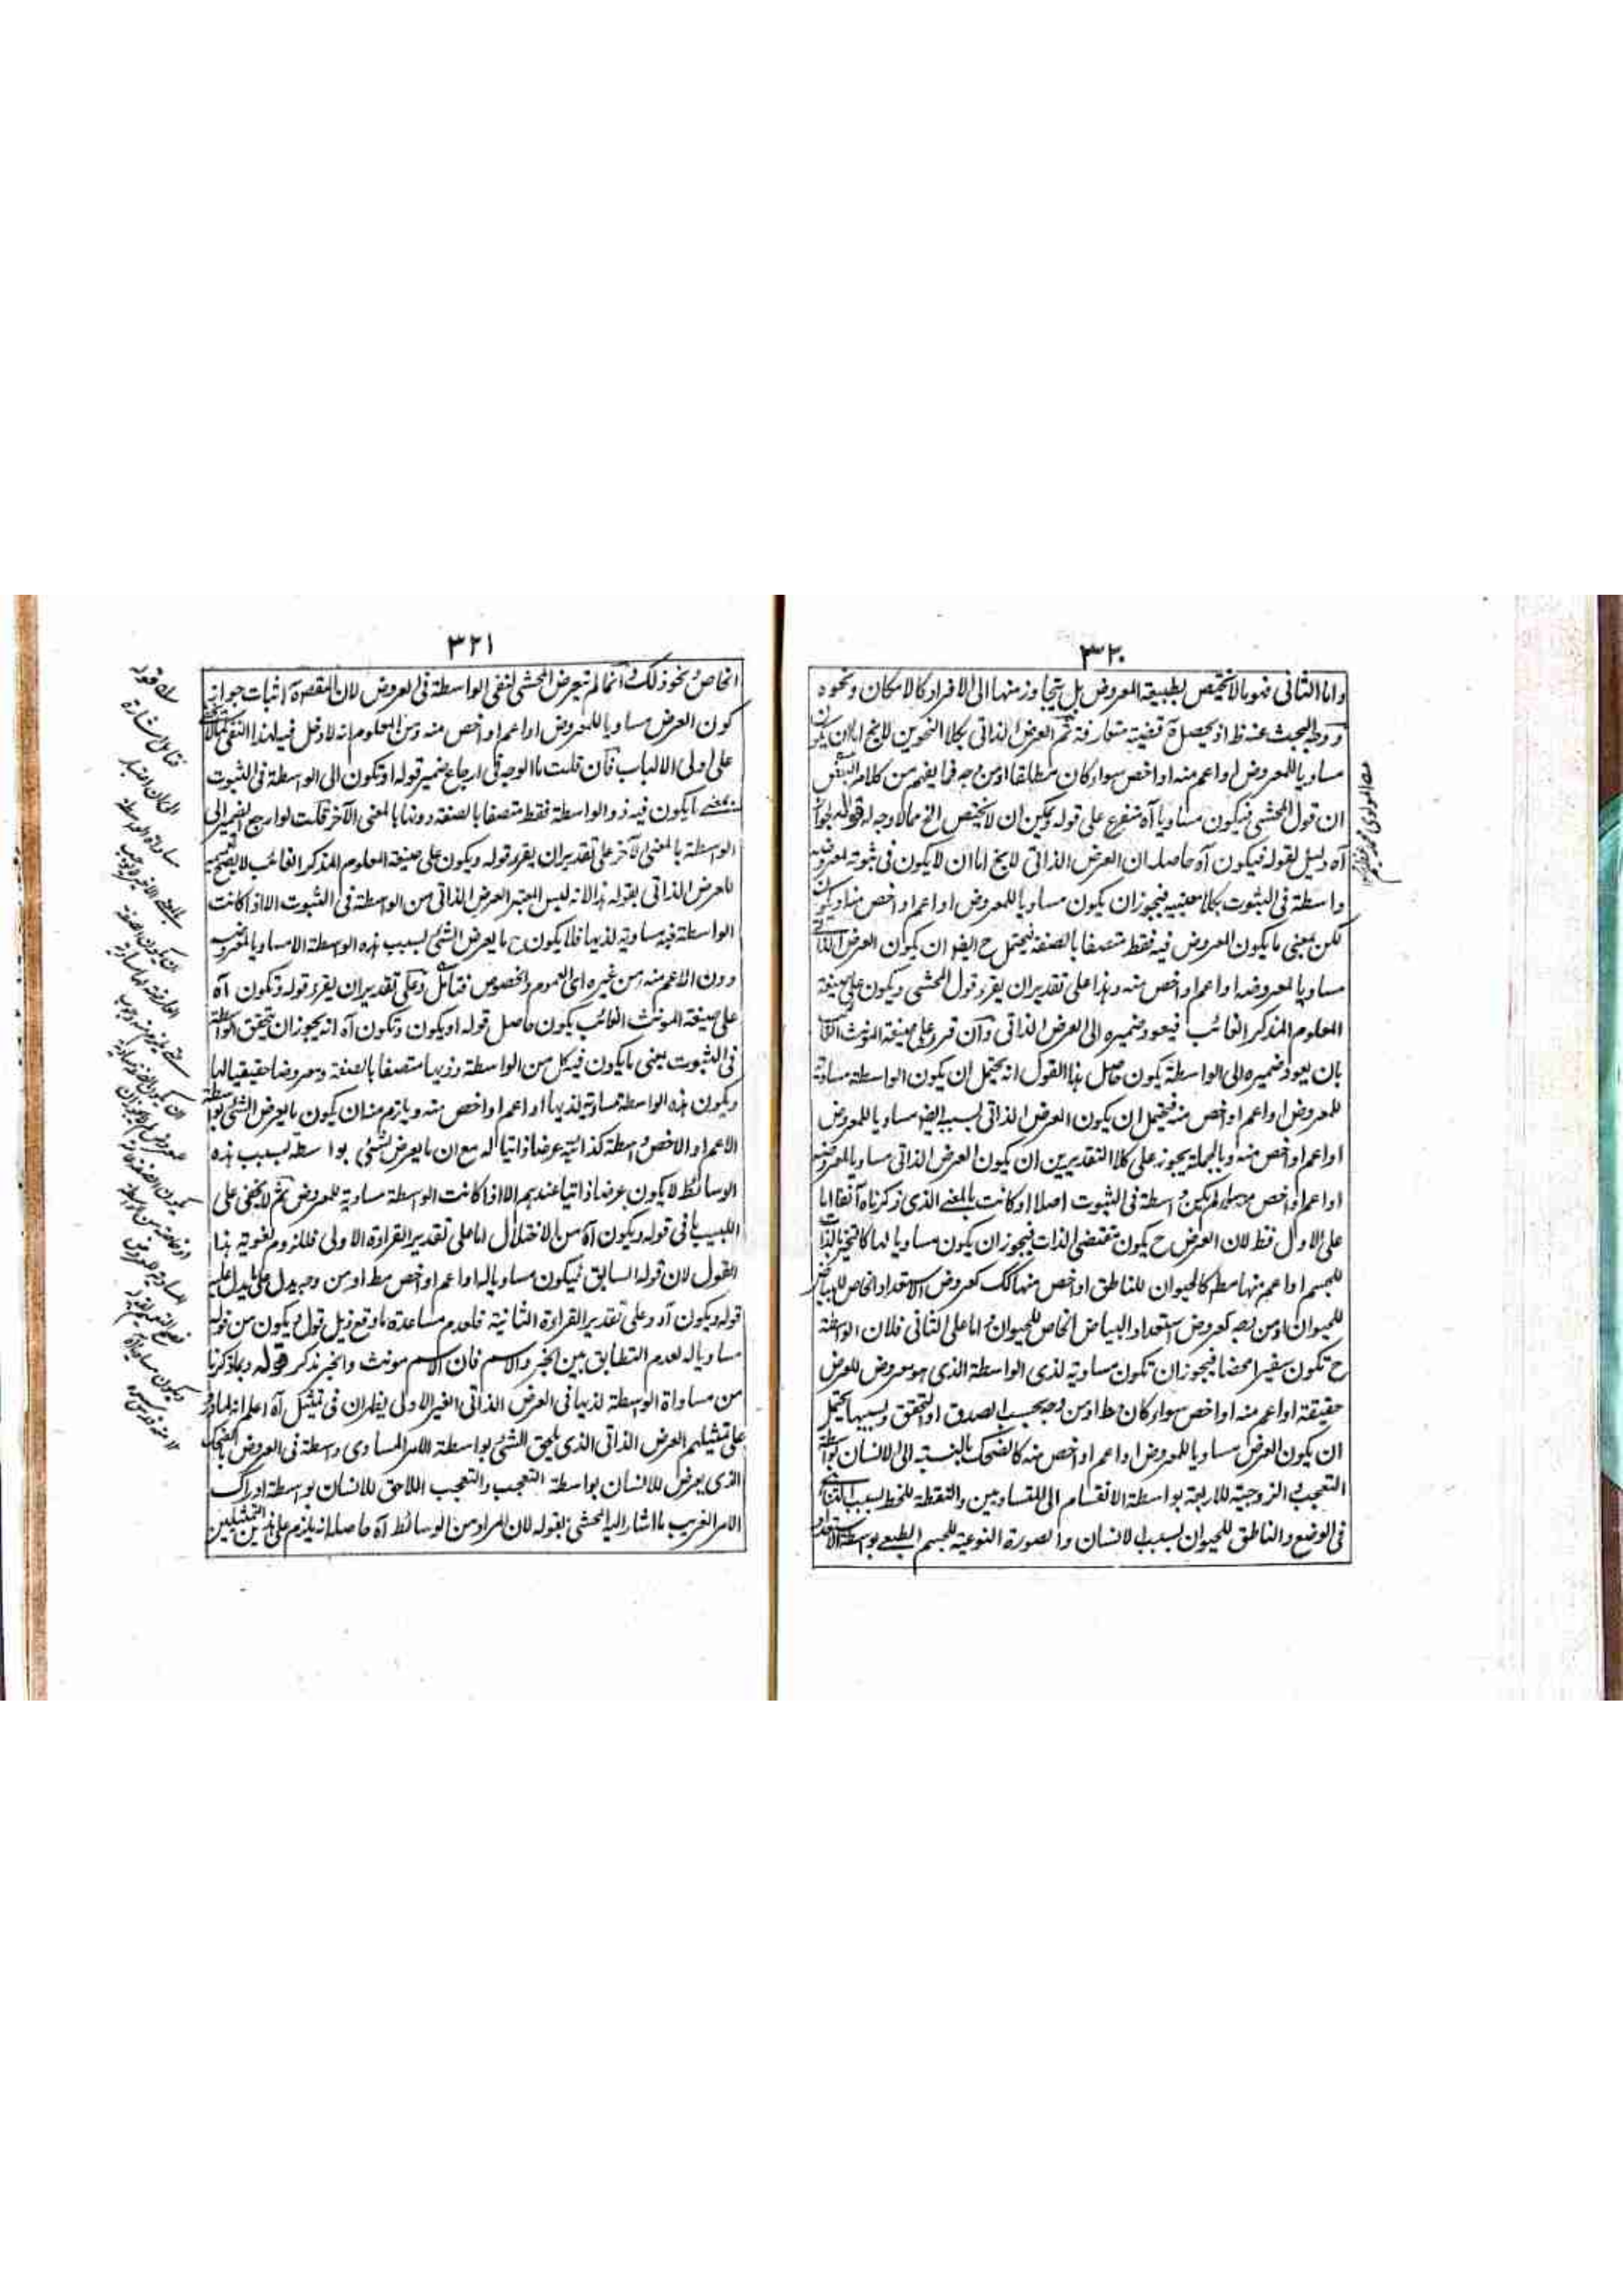 ٣٢٠
واما الثانى فهو ما لا تختص بطبيعة المعروض بل يتجاوز منها الى الافراد كالامكان ونحوه
البحث عنه ظ اذ يحصل آه قضيته متعارفة ثم العرض الذاتى بكلا النحوين لايخ اما ان يكون
مساويا للمعروض او اعم منه او اخص سواء كان مطلقا او من وجه فما يفهم من كلام البعض
ان قول المحشى فيكون مساويا آه متفرع على قوله ويمكن ان لا يختص الخ مما لا وجه له قوله
آه دليل لقوله فيكون آه حاصله ان العرض الذاتى لايخ اما ان لا يكون فى ثبوته لمعروضه
واسطة فى الثبوت بكلا معنييه فيجوز ان يكون مساويا للمعروض او اعم او اخص منه او يكون
لكن بمعنى ما يكون المعروض فيه فقط متصفا بالصفة فيحتمل ح ايضا ان يكون العرض الذاتى
مساويا لمعروضه او اعم او اخص منه وهذا على تقدير ان يقرء قول المحشى ويكون على صيغة
المعلوم المذكر الغائب فيعود ضميره الى العرض الذاتى وان قرء على صيغة المونث الغائب
بان يعود ضميره الى الواسطة يكون حاصل هذا القول انه يحتمل ان يكون الواسطة مساوية
للمعروض او اعم او اخص منه فيحتمل ان يكون العرض الذاتى بسببه ايضا مساويا للمعروض
او اعم او اخص منه وبالجملة يجوز على كلا التقديرين ان يكون العرض الذاتى مساويا لمعروضه
او اعم او اخص منه سواء لم يكن واسطة فى الثبوت اصلا او كانت بالمعنے الذى ذكرناه آنفا اما
على الاول فظ لان العرض ح يكون مقتضى الذات فيجوز ان يكون مساويا لها كالتحيز بالذات
للجسم او اعم منها مط كالحيوان للناطق او اخص منها كك كعروض الاستعداد الخاص للبياض
للحيوان او من وجه كعروض استعداد البياض الخاص للحيوان واما على الثانى فلان الواسطة
ح تكون سفيرا محضا فيجوز ان تكون مساوية لذى الواسطة الذى هو معروض للعرض
حقيقة او اعم منه او اخص سواء كان مط او من وجه بحسب الصدق او التحقق وبسببها يحتمل
ان يكون العرض مساويا للمعروض او اعم او اخص منه كالضحك بالنسبة الى الانسان بواسطة
التعجب والزوجية للاربعة بواسطة الانقسام الى المتساويين والنقطة للخط بسبب التناهى
فى الوضع والناطق للحيوان بسبب الانسان والصورة النوعية للجسم الطبعے بواسطة الاستعداد
٣٢١
الخاص ونحو ذلك وانما لم يتعرض المحشى لنفى الواسطة فى العروض لان المقصد آه اثبات جواز
كون العرض مساويا للمعروض او اعم او اخص منه ومن المعلوم انه لا دخل فيه لهذا النفى كما لا يخفى
على اولى الالباب فان قلت ما الوجه فى ارجاع ضمير قوله او تكون الى الواسطة فى الثبوت
بمعنے ما يكون فيه ذو الواسطة فقط متصفا بالصفة دونها بالمعنى الآخر قلت لو ارجع الضمير الى
الواسطة بالمعنى الآخر على تقدير ان يقرء قوله ويكون على صيغة المعلوم المذكر الغائب لا يصح
للعرض الذاتى بقوله هذا لانه ليس المعتبر العرض الذاتى من الواسطة فى الثبوت الا اذا كانت
الواسطة فيه مساوية لذيها فلا يكون ح ما يعرض الشئ بسبب هذه الواسطة الا مساويا لمعروضه
دون الاعم منه من غيره اى العموم والخصوص فتامل وعلى تقدير ان يقرء قوله وتكون آه
على صيغة المونث الغائب يكون حاصل قوله او يكون وتكون آه انه يجوز ان يتحقق الواسطة
فى الثبوت بمعنى ما يكون فيه كل من الواسطة وذيها متصفا بالصفة ومعروضا حقيقيا لها
ويكون هذه الواسطة مساوية لذيها او اعم او اخص منه ويلزم منه ان يكون ما يعرض الشئ بواسطة
الاعم او الاخص واسطة كذائية عرضا ذاتيا له مع ان ما يعرض لشئ بواسطة بسبب هذه
الوسائط لا يكون عرضا ذاتيا عندهم الا اذا كانت الواسطة مساوية للمعروض ثم لا يخفى على
اللبيب ما فى قوله ويكون آه من الاختلال اما على تقدير القراءة الاولى فللزوم لغوية هذا
القول لان قوله السابق فيكون مساويا له او اعم او اخص مط او من وجه يدل على ما يدل عليه
قوله ويكون آه وعلى تقدير القراءة الثانية فلعدم مساعدة ما وقع ذيل قوله ويكون من قوله
مساويا له لعدم التطابق بين الخبر والاسم فان الاسم مونث والخبر مذكر قوله وبما ذكرنا
من مساواة الواسطة لذيها فى العرض الذاتى الغير الاولى يظهر ان فى تمثيل آه اعلم انه لما ورد
على تمثيلهم العرض الذاتى الذى يلحق الشئ بواسطة الامر المساوى واسطة فى العروض بالضحك
الذى يعرض للانسان بواسطة التعجب والتعجب اللاحق للانسان بواسطة ادراك
الامر الغريب ما اشار اليه المحشى بقوله لان المراد من الوسائط آه حاصله انه يلزم على هذين التمثيلين